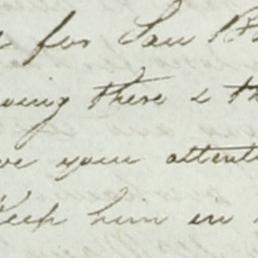 for San
oing there & th
ve your attenti
Keep him in